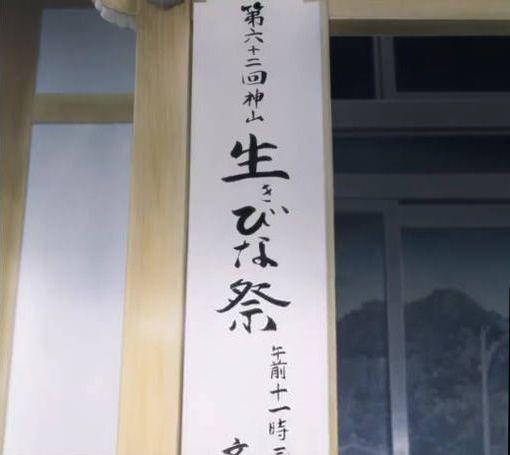 第六十二回神山
生きびな祭
午前十一時三